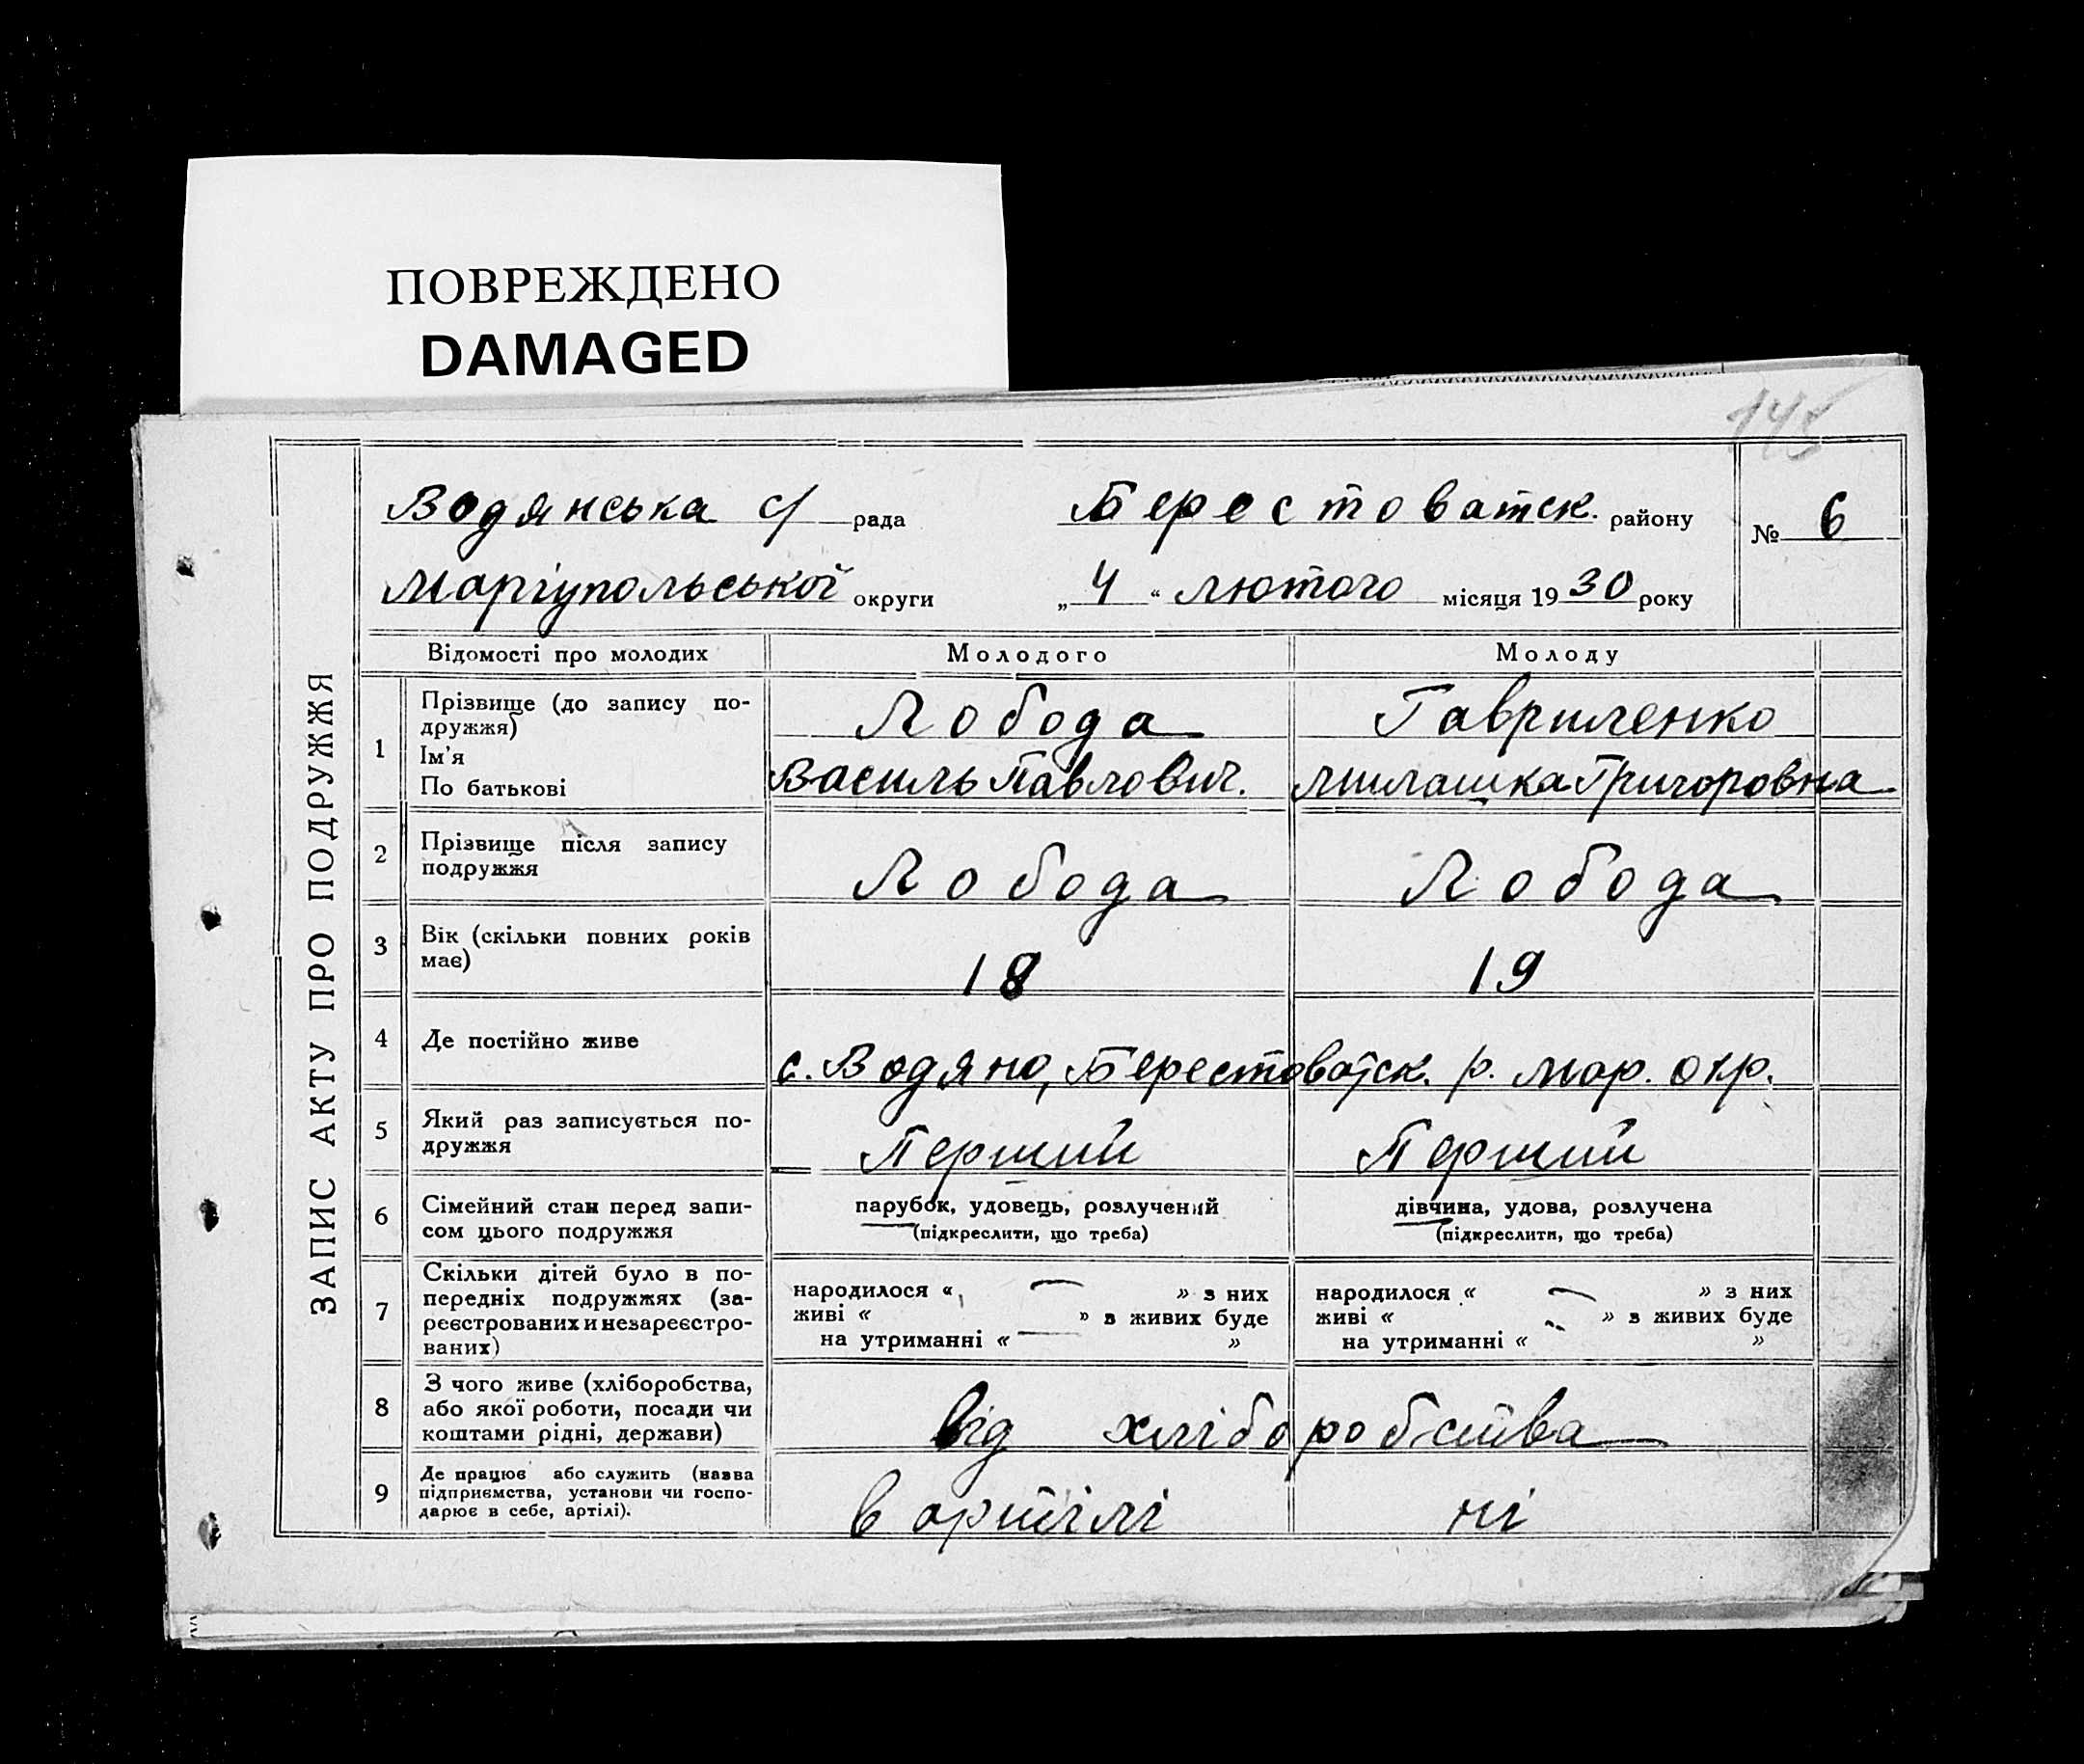 ПОВРЕЖДЕНО
DAMAGED
145
Водянська с/ рада Берестоватск. району № 6
Маріупольської округи „ 4 “ лютого місяця 1930 року
ЗАПИС АКТУ ПРО ПОДРУЖЖЯ
Відомості про молодих Молодого Молоду
1 Прізвище (до запису по-
дружжя) Лобода Гавриленко
Ім'я
По батькові Василь Павлович. Милашка Григоровна
2 Прізвище після запису
подружжя Лобода Лобода
3 Вік (скільки повних років
має) 18 19
4 Де постійно живе с. Водяно, Берестоватск. р. Мар. окр.
5 Який раз записується по-
дружжя Перший Перший
6 Сімейний стан перед запи-
сом цього подружжя парубок, удовець, розлучений дівчина, удова, розлучена
(підкреслити, що треба) (підкреслити, що треба)
7 Скільки дітей було в по-
передніх подружжях (за-
реєстрованих и незареєстро-
ваних)
народилося « — » з них народилося « — » з них
живі « » з живих буде живі « » з живих буде
на утриманні « — » на утриманні « »
8 З чого живе (хліборобства,
або якої роботи, посади чи
коштами рідні, держави) від хліборобства
9 Де працює або служить (назва
підприємства, установи чи госпо-
дарює в себе, артілі). в артілі ні